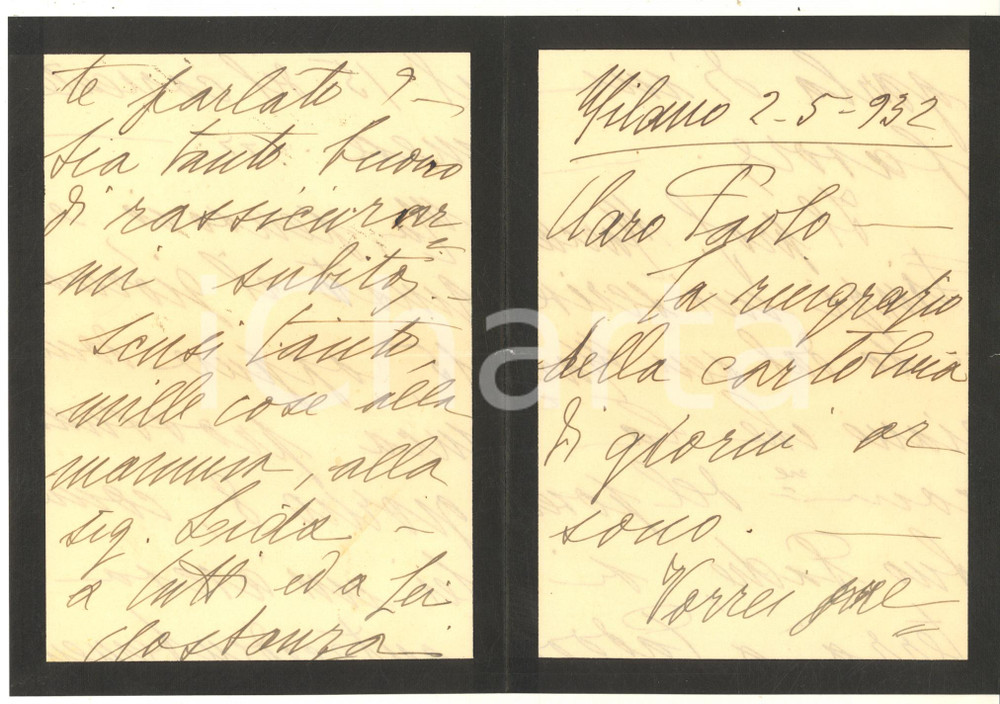 Milano 2-5-932
Caro Paolo —
La ringrazio
della cartolina
di giorni or
sono. —
Vorrei
te parlato? —
Sia tanto buono
di rassicurar=
mi subito, -
Scusi tanto,
mille cose alla
mamma, alla
sig. Leida -
a tutti ed a Lei
Costanza
iCharta